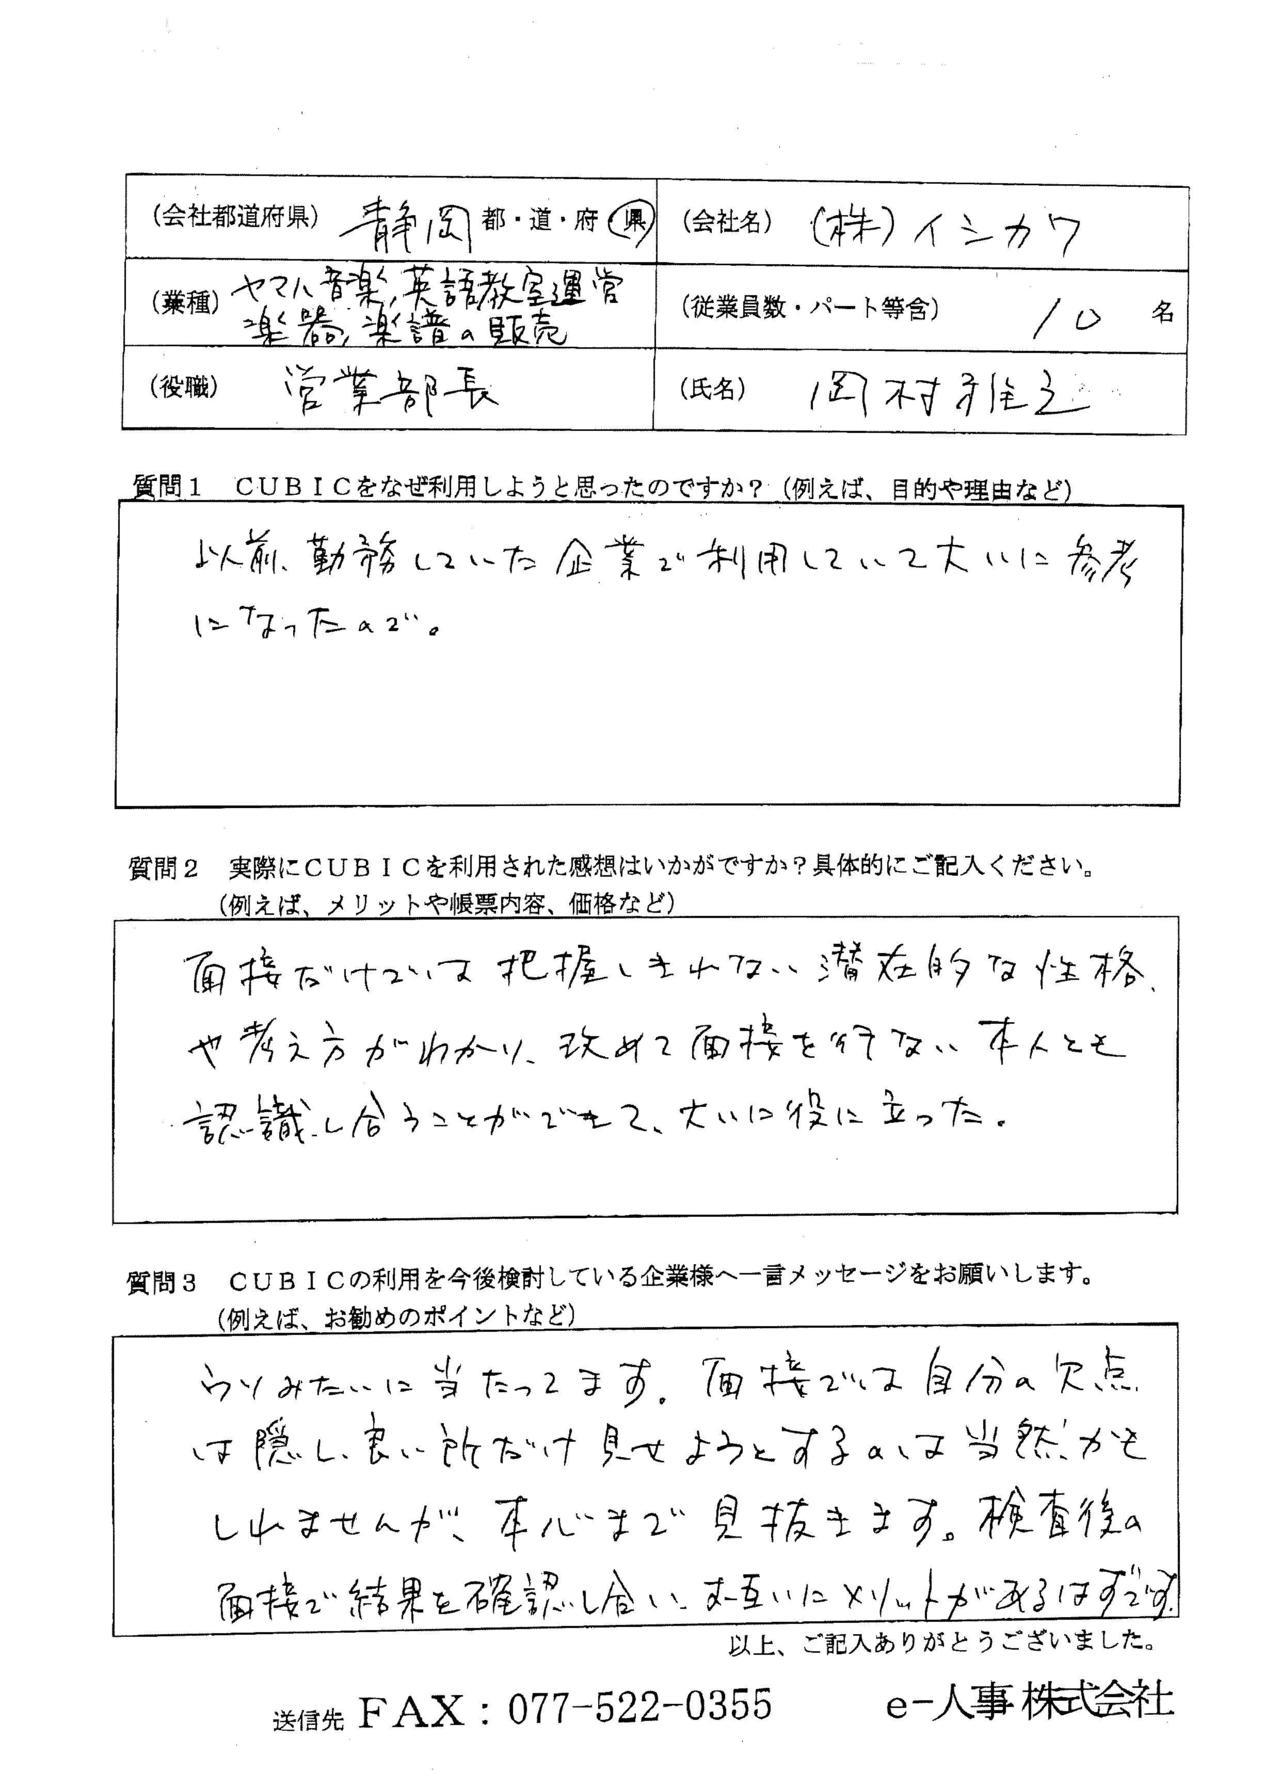 (会社都道府県) 静岡 都・道・府・県 (会社名) (株)イシカワ
(業種) ヤマハ音楽,英語教室運営
楽器,楽譜の販売
(従業員数・パート等含) 10 名
(役職) 営業部長 (氏名) 岡村雅之
質問1 CUBICをなぜ利用しようと思ったのですか?(例えば、目的や理由など)
以前、勤務していた企業で利用していて大いに参考
になったので。
質問2 実際にCUBICを利用された感想はいかがですか?具体的にご記入ください。
(例えば、メリットや帳票内容、価格など)
面接だけでは把握しきれない潜在的な性格、
や考え方がわかり、改めて面接を行ない、本人とも
認識し合うことができて、大いに役に立った。
質問3 CUBICの利用を今後検討している企業様へ一言メッセージをお願いします。
(例えば、お勧めのポイントなど)
ウソみたいに当たってます。面接では自分の欠点
は隠し、良い所だけ見せようとするのは当然かも
しれませんが、本心まで見抜きます。検査後の
面接で結果を確認し合い、お互いにメリットがあるはずです。
以上、ご記入ありがとうございました。
送信先 FAX:077-522-0355 e-人事株式会社